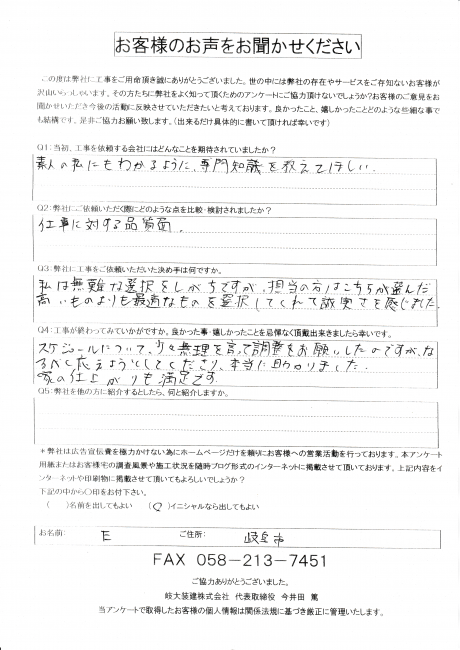 お客様のお声をお聞かせください
この度は弊社に工事をご用命頂き誠にありがとうございました。世の中には弊社の存在やサービスをご存知ないお客様が
沢山いらっしゃいます。その方たちに弊社をよく知って頂くためのアンケートにご協力頂けないでしょうか?お客様のご意見をお
聞かせいただき今後の活動に反映させていただきたいと考えております。良かったこと、嬉しかったことどのような些細な事で
も結構です。是非ご協力お願い致します。(出来るだけ具体的に書いて頂ければ幸いです)
Q1:当初、工事を依頼する会社にはどんなことを期待されていましたか?
素人の私にもわかるように、専門知識を教えてほしい.
Q2:弊社にご依頼いただく際にどのような点を比較・検討されましたか?
仕事に対する品質面.
Q3:弊社に工事をご依頼いただいた決め手は何ですか。
私は無難な選択をしがちですが、担当の方はこちらが選んだ
高いものよりも最適なものを選択してくれて誠実さを感じました
Q4:工事が終わってみていかがですか。良かった事・嬉しかったことを忌憚なく頂戴出来きましたら幸いです。
スケジュールについて、少々無理を言って調整をお願いしたのですが、な
るべく応えようとしてくださり、本当に助かりました.
家の仕上がりも満足です.
Q5:弊社を他の方に紹介するとしたら、何と紹介しますか。
*弊社は広告宣伝費を極力かけない為にホームページだけを頼りにお客様への営業活動を行っております。本アンケート
用紙またはお客様宅の調査風景や施工状況を随時ブログ形式のインターネットに掲載させて頂いております。上記内容をイ
ンターネットや印刷物に掲載させて頂いてもよろしいでしょうか?
下記の中から〇印をお付下さい。
( )名前を出してもよい (〇)イニシャルなら出してもよい
お名前: E ご住所: 岐阜市
FAX 058-213-7451
ご協力ありがとうございました。
岐大装建株式会社 代表取締役 今井田 篤
当アンケートで取得したお客様の個人情報は関係法規に基づき厳正に管理いたします。